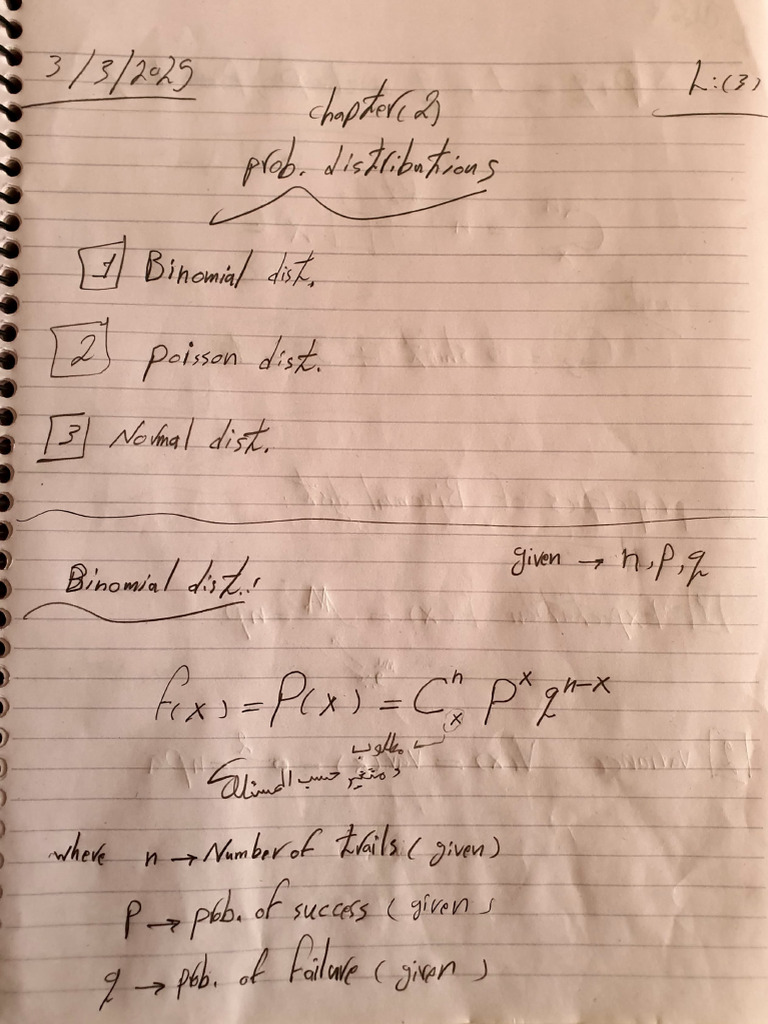 3/3/2025
L:(3)
chapter(2)
prob. distributions
1 Binomial dist.
2 poisson dist.
3 Normal dist.
given → n, p, q
Binomial dist.:
f(x) = P(x) = C^n_x P^x q^{n-x}
مطلوب
ومتغير حسب المسئلة
where n → Number of trails (given)
P → prob. of success (given)
q → prob. of failure (given)